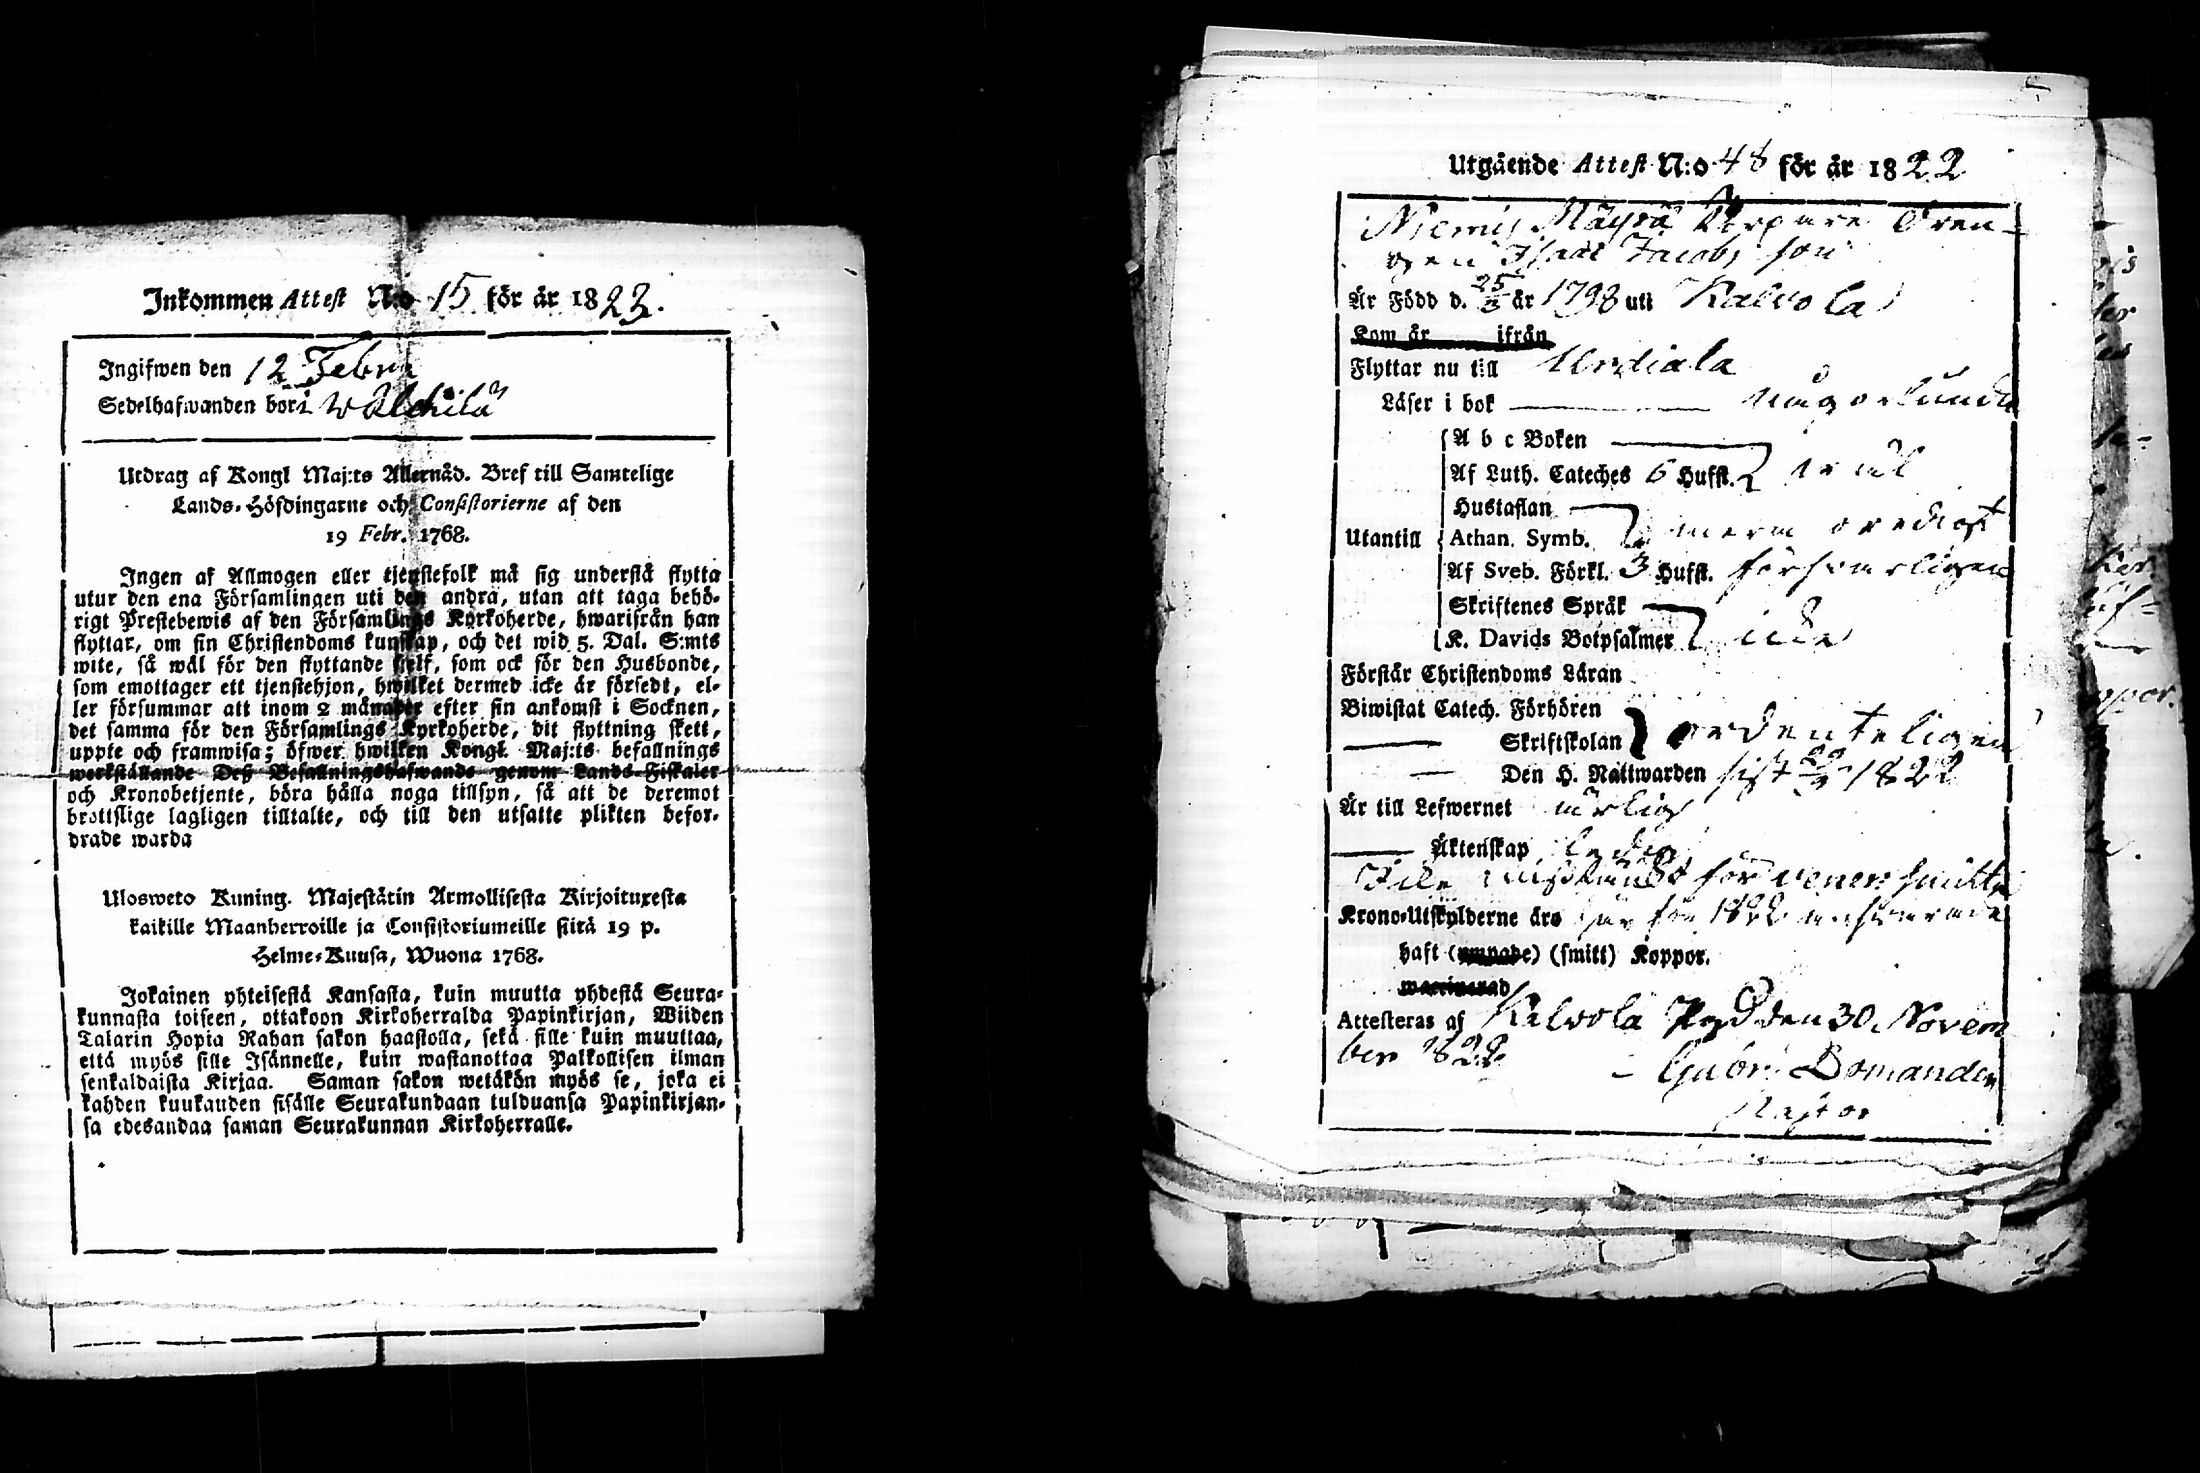 Inkommen Attest N:o 15 för år 1823.
Ingifwen den 12 Febru
Sedelhafwanden bor i Walchila
Utdrag af Kongl Maj:ts Allernåd. Bref till Samtelige
Lands-Höfdingarne och Consistorierne af den
19 Febr. 1768.
Ingen af Allmogen eller tjenstefolk må sig understå flytta
utur den ena Församlingen uti den andra, utan att taga behö-
rigt Prestebewis af den Församlings Kyrkoherde, hwarifrån han
flyttar, om sin Christendoms kunskap, och det wid 5. Dal. S:mts
wite, så wäl för den flyttande sielf, som ock för den Husbonde,
som emottager ett tjenstehjon, hwilket dermed icke är försedt, el-
ler försummar att inom 2 månader efter sin ankomst i Socknen,
det samma för den Församlings Kyrkoherde, dit flyttning skett,
uppte och framwisa; öfwer hwilken Kongl Maj:ts befallnings
werkställande Deß Befallningshafwande genom Lands-Fiskaler
och Kronobetjente, böra hålla noga tillsyn, så att de deremot
brottslige lagligen tilltalte, och till den utsatte plikten befor-
drade warda
Ulosweto Kuning. Majestätin Armollisesta Kirjoituxesta
kaikille Maanherroille ja Consistoriumeille siitä 19 p.
Helme-Kuusa, Wuona 1768.
Jokainen yhteisestä Kansasta, kuin muutta yhdestä Seura-
kunnasta toiseen, ottakoon Kirkoherralda Papinkirjan, Wiiden
Talarin Hopia Rahan sakon haastolla, sekä sille kuin muuttaa,
että myös sille Isännelle, kuin wastanottaa Palkollisen ilman
senkaldaista Kirjaa. Saman sakon wetäkön myös se, joka ei
kahden kuukauden sisälle Seurakundaan tulduansa Papinkirjan-
sa edesandaa saman Seurakunnan Kirkoherralle.
Utgående Attest N:o 48 för år 1822
Niemis Mäyrä Dren-
gen Isaac Jacobs son
Är Född d. 25/3 år 1798 uti Kalvola
Kom år ifrån
Flyttar nu till Urdiala
Läser i bok någorlunda
A b c Boken
Af Luth. Cateches 6 Hufst.
Hustaflan
Utantill Athan. Symb.
Af Sveb. Förkl. 3 Hufst. försvarligen
Skriftenes Språk
K. Davids Botpsalmer icke
Förstår Christendoms Läran
Biwistat Catech. Förhören
Skriftskolan ordenteligen
Den H. Nattwarden sist 1822
Är till Lefwernet ärlig
Äktenskap ledig
Krono-Utskylderne äro för 1822
haft (ympade) (smitt) Koppor.
Attesteras af Kalvola Pgd den 30 Novem
ber 1822
Gabr. Domander
Pastor